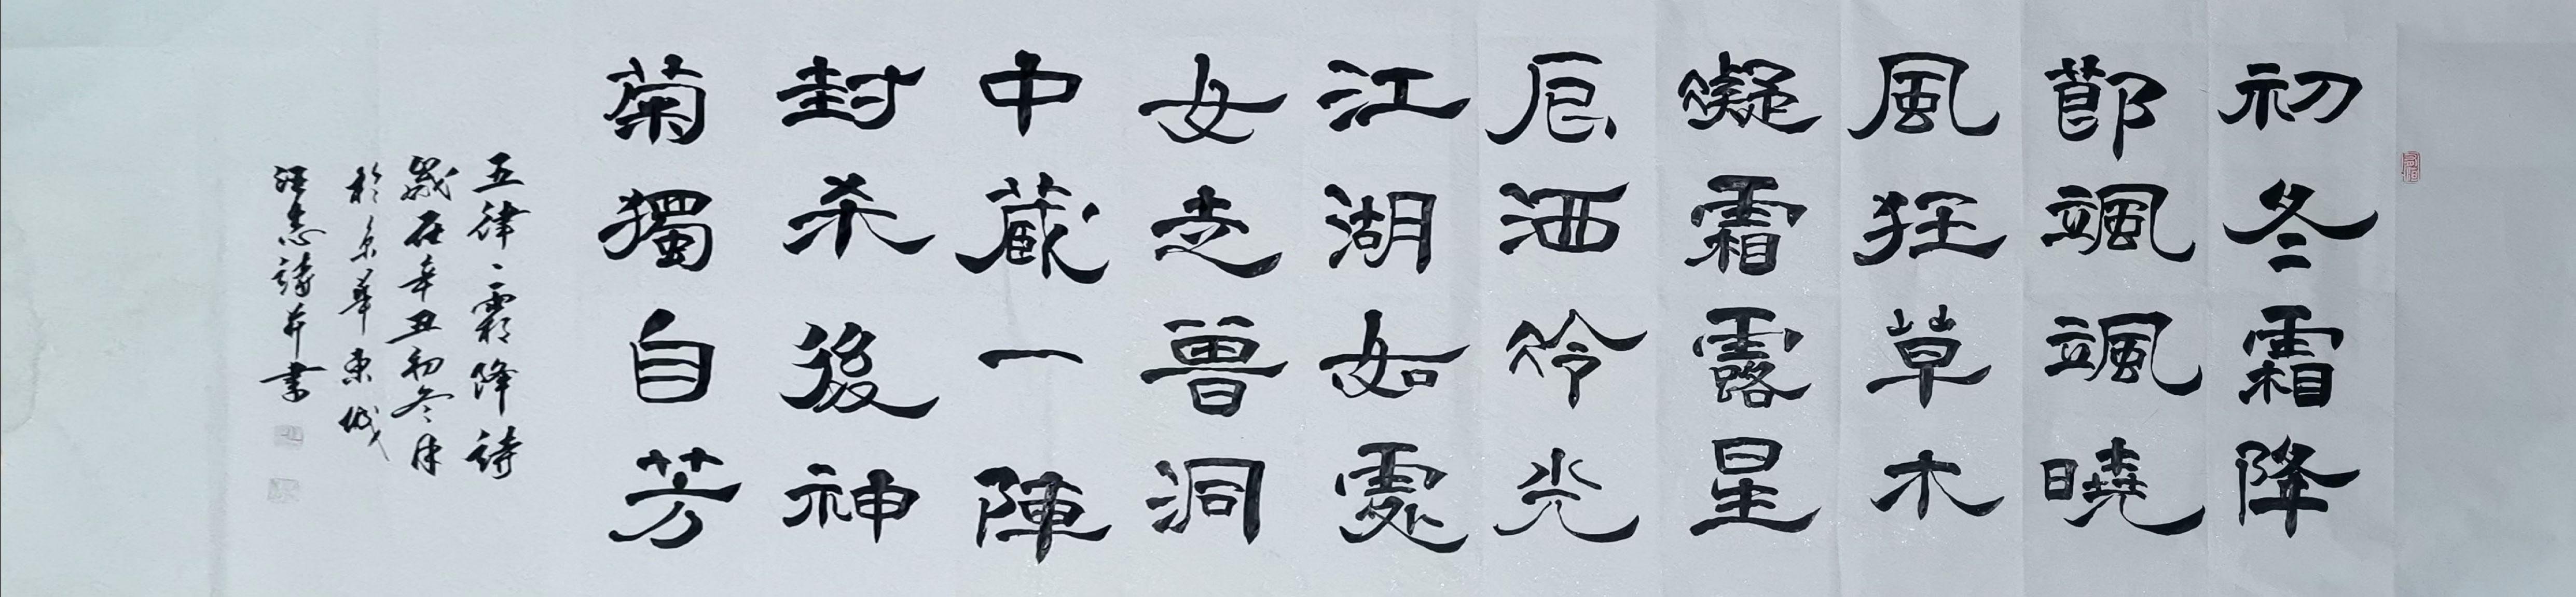 初冬霜降
節颯颯曉
風狂草木
凝霜露星
辰洒冷光
江湖如處
女走兽洞
中蔵一陣
封杀後神
菊獨自芳
五律、霜降詩
歲在辛丑初冬月
於京華東城
汪志詩并書